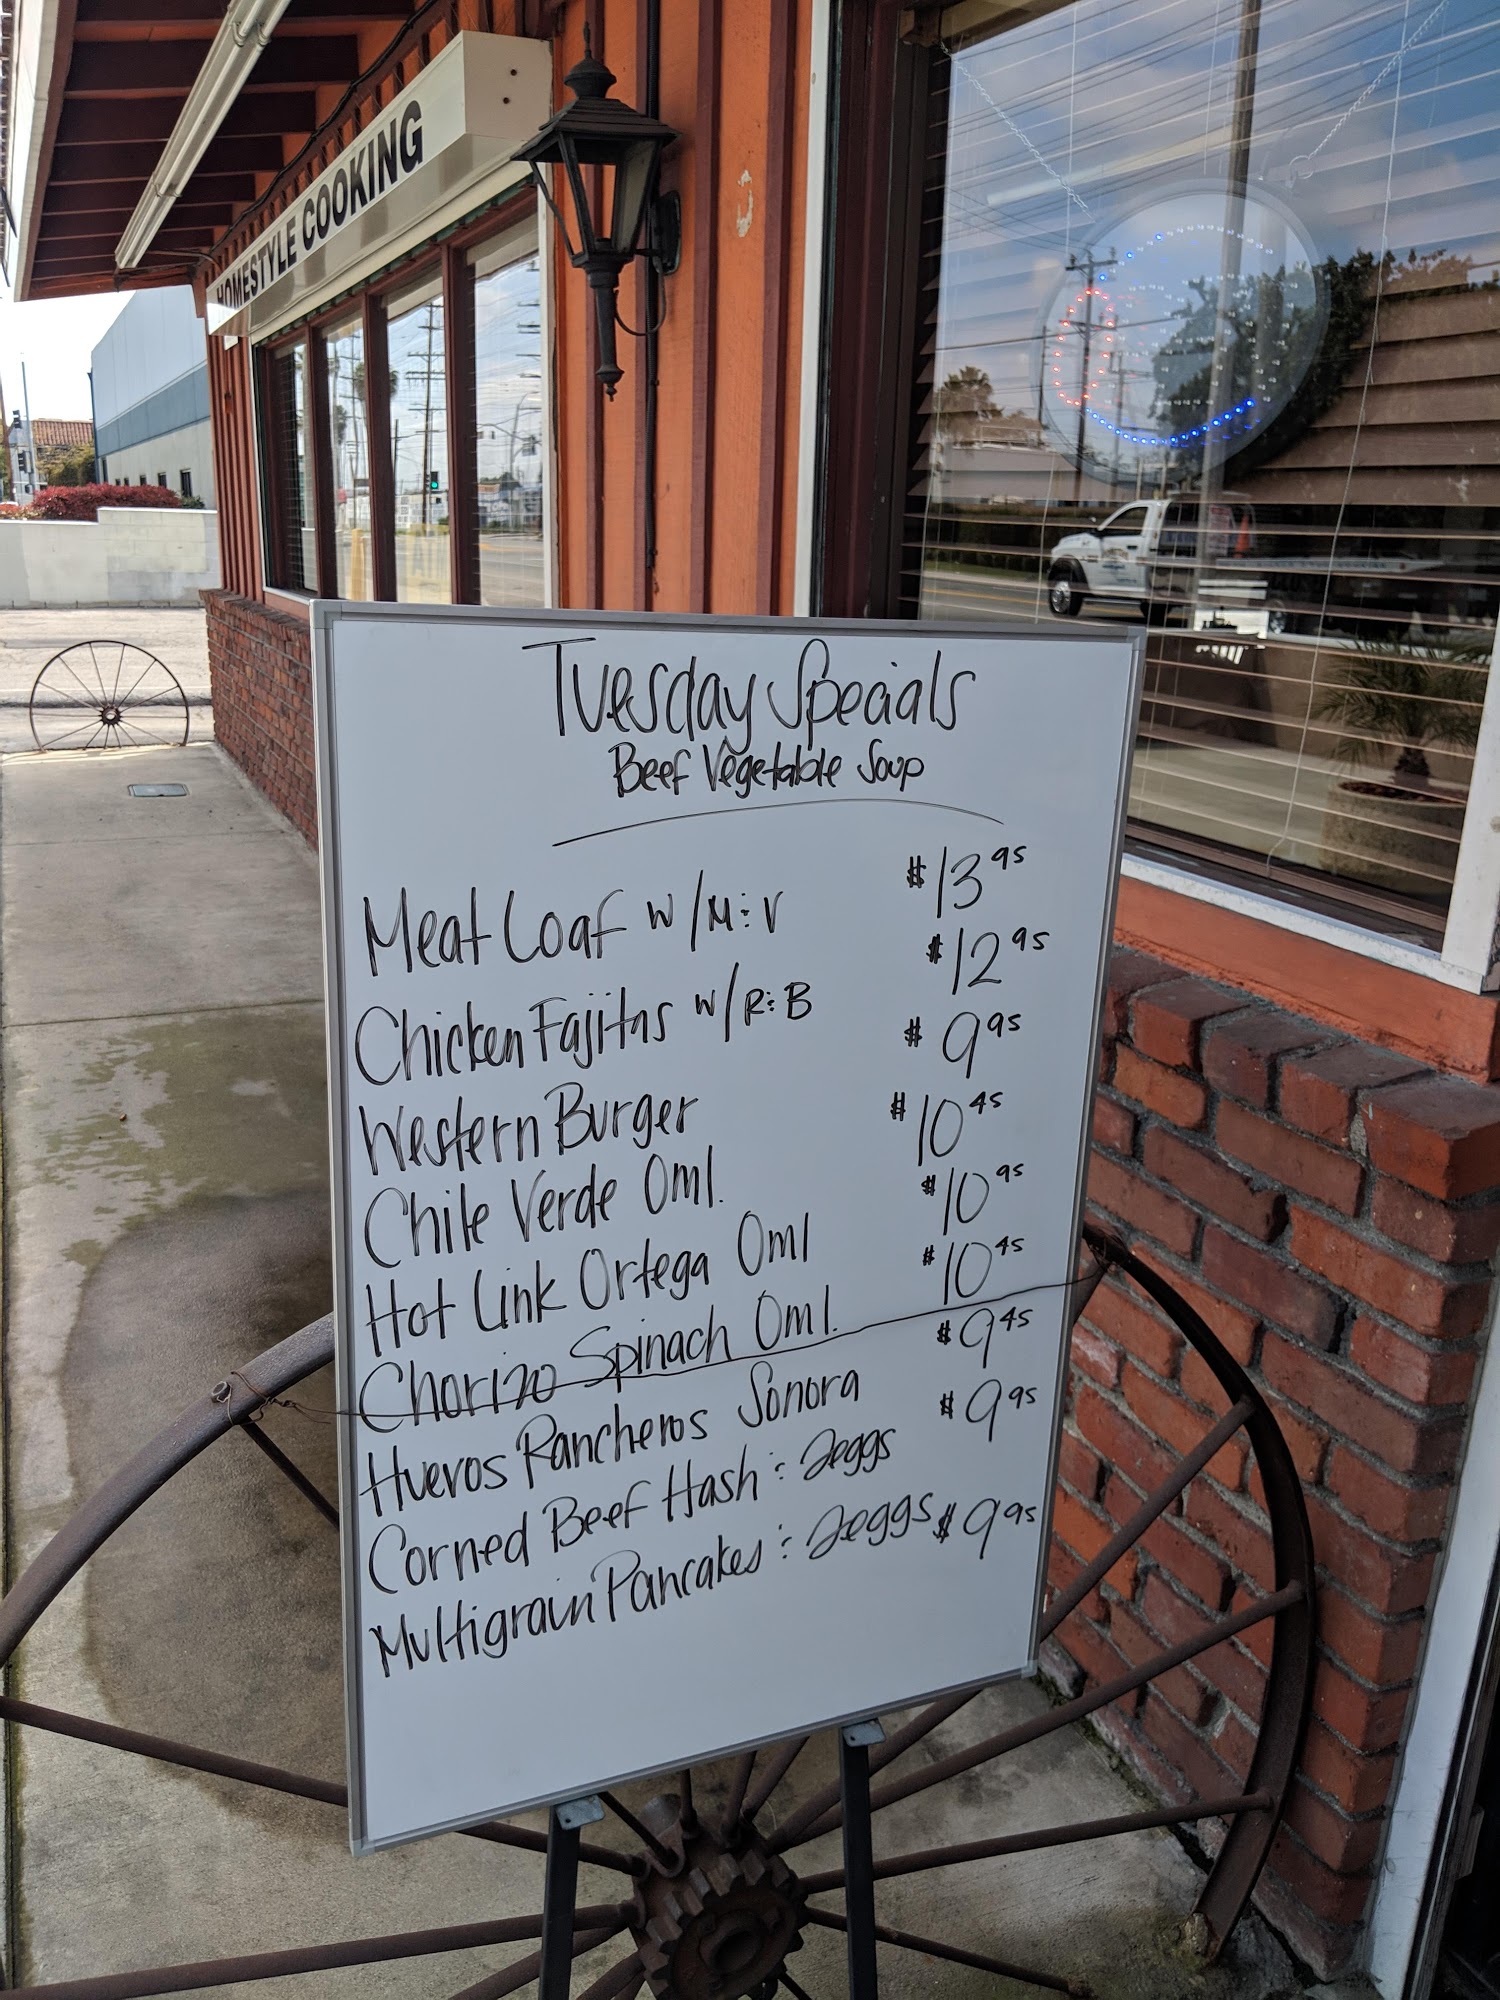 HOMESTYLE COOKING
Tuesday Specials
Beef Vegetable Soup
Meat Loaf w/M:V $13 95
Chicken Fajitas w/R:B $12 95
Western Burger $9 95
Chile Verde Oml. $10 45
Hot Link Ortega Oml $10 95
Chorizo Spinach Oml. $10 45
Huevos Rancheros Sonora $9 45
Corned Beef Hash : 2eggs $9 95
Multigrain Pancakes : 2eggs $9 95